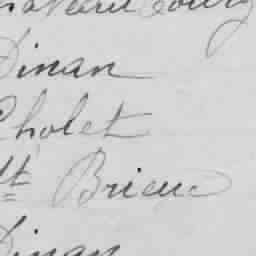 Dinan
Cholet
St Brieuc
Dinan